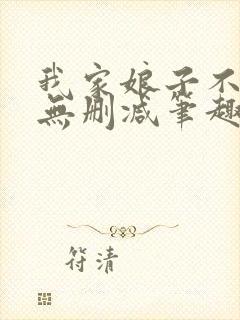 我家娘子不
無删减筆趣
符清